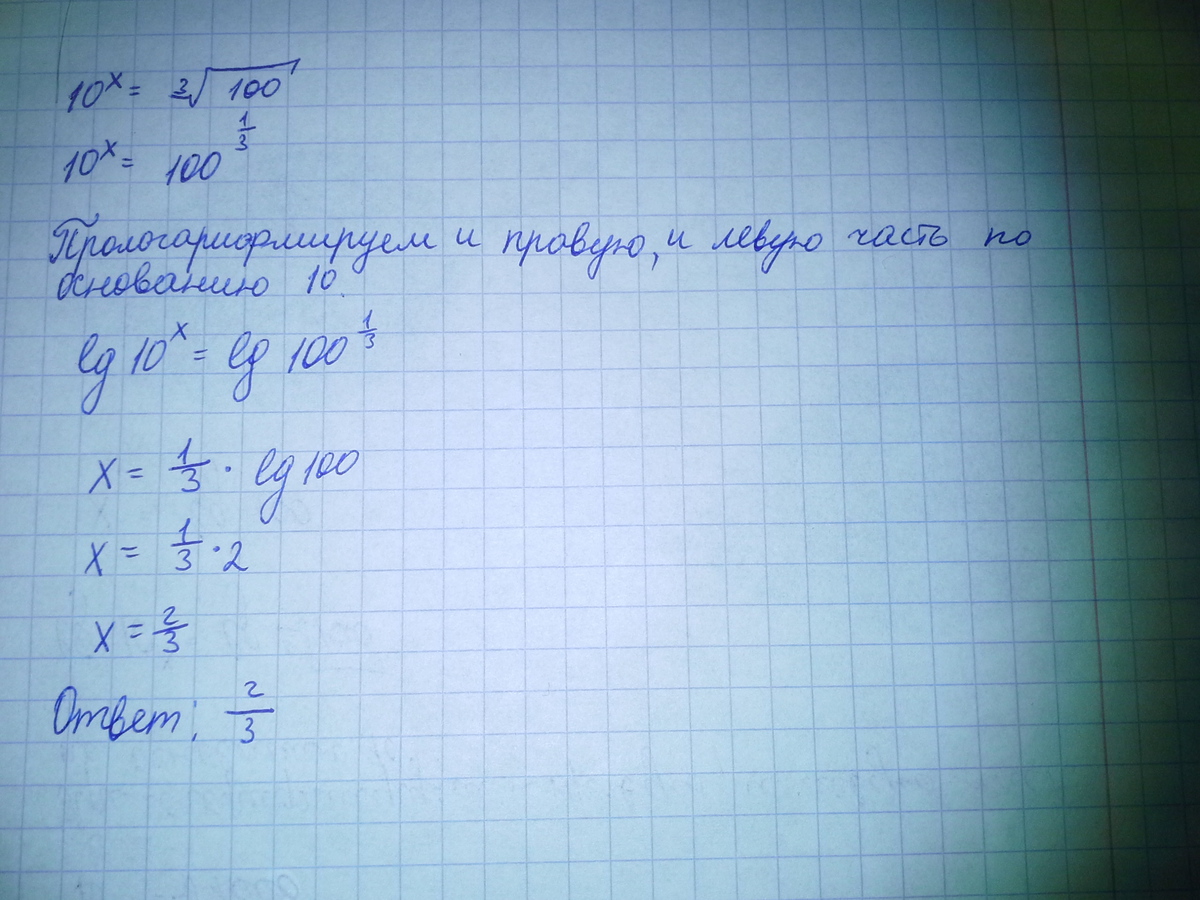 10^x = ∛100
10^x = 100^(1/3)
Прологарифмируем и правую, и левую часть по
основанию 10.
lg 10^x = lg 100^(1/3)
x = 1/3 · lg 100
x = 1/3 · 2
x = 2/3
Ответ: 2/3